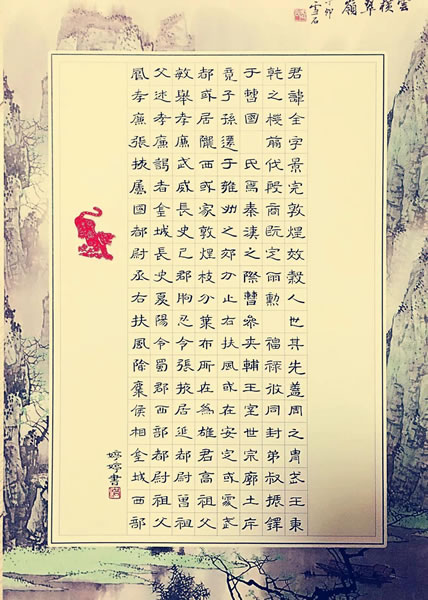 雲橫翠嶺
雪石
君諱全字景完敦煌效穀人也其先蓋周之胄武王秉
乾之機翦伐殷商既定爾勳 福祿攸同封弟叔振鐸
于曹國 氏焉秦漢之際曹參夾輔王室世宗廓土斥
竟子孫遷于雍州之郊分止右扶風或在安定或處武
都或居隴西或家敦煌枝分葉布所在為雄君高祖父
敏舉孝廉武威長史巴郡朐忍令張掖居延都尉曾祖
父述孝廉謁者金城長史夏陽令蜀郡西部都尉祖父
鳳孝廉張掖屬國都尉丞右扶風隃麋侯相金城西部
婷婷書